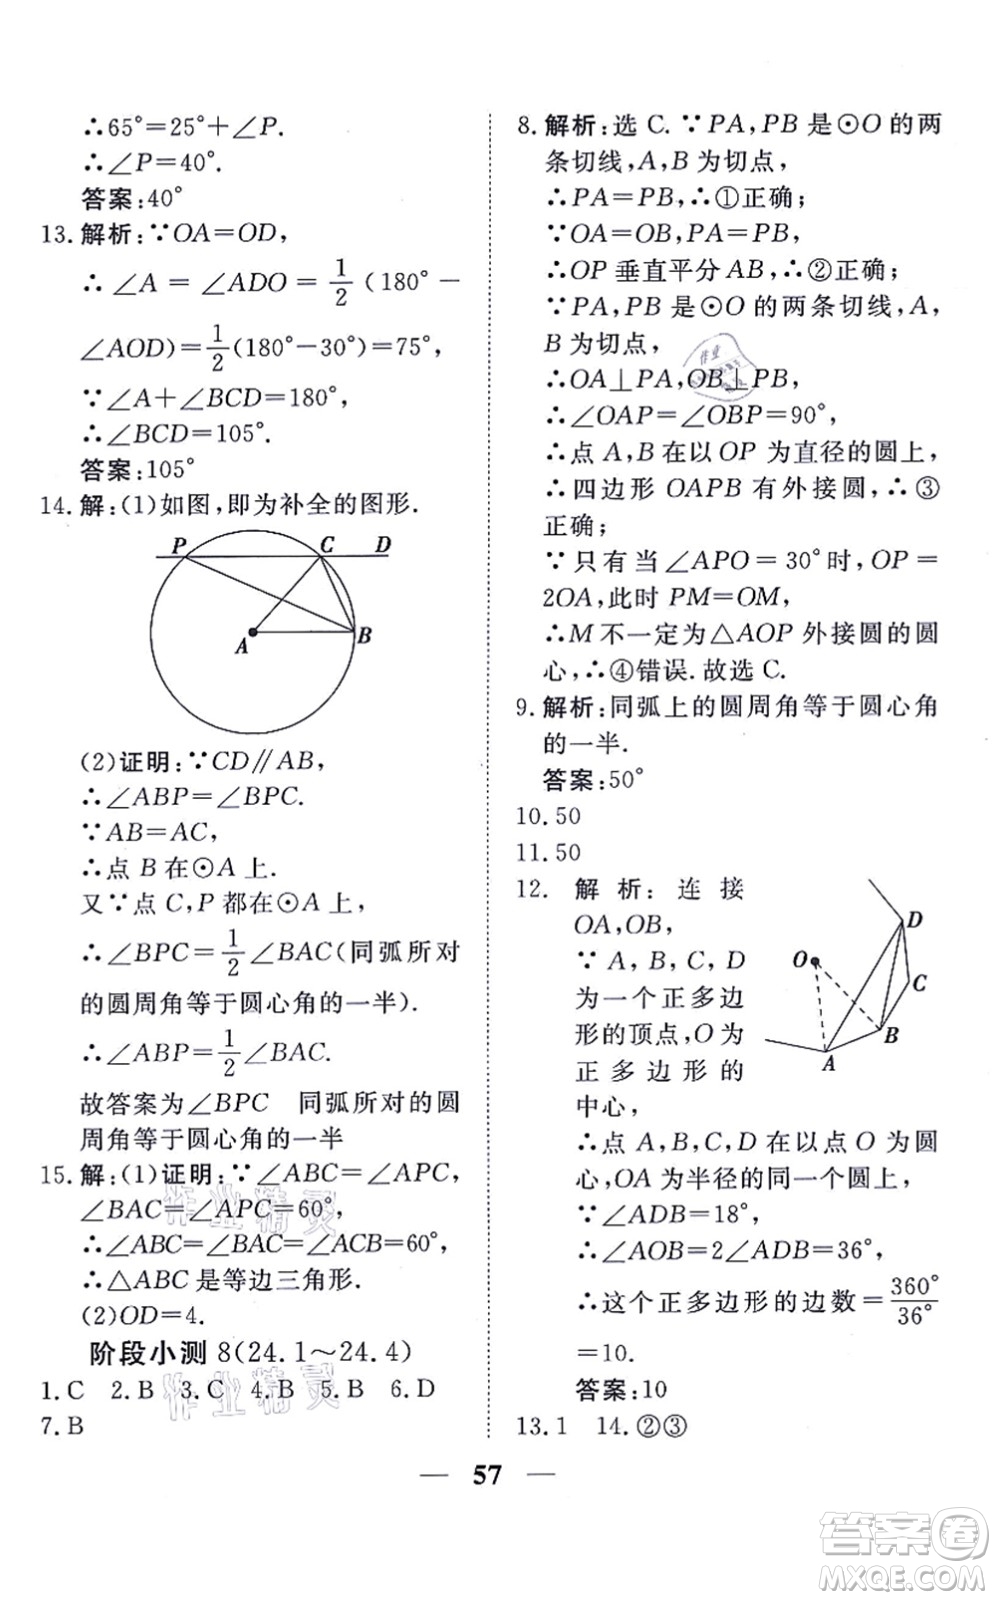 ∴65°=25°+∠P.
∴∠P=40°.
答案:40°
13.解析:∵OA=OD,
∴∠A=∠ADO=1/2(180°-
∠AOD)=1/2(180°-30°)=75°,
∵∠A+∠BCD=180°,
∴∠BCD=105°.
答案:105°
14.解:(1)如图,即为补全的图形.
P C D
A B
(2)证明:∵CD∥AB,
∴∠ABP=∠BPC.
∵AB=AC,
∴点B在⊙A上.
又∵点C,P都在⊙A上,
∴∠BPC=1/2∠BAC(同弧所对
的圆周角等于圆心角的一半).
∴∠ABP=1/2∠BAC.
故答案为∠BPC 同弧所对的圆
周角等于圆心角的一半
15.解:(1)证明:∵∠ABC=∠APC,
∠BAC=∠APC=60°,
∴∠ABC=∠BAC=60°,
∴△ABC是等边三角形.
(2)OD=4.
阶段小测8(24.1～24.4)
1.C 2.B 3.C 4.B 5.B 6.D
7.B
8.解析:选C.∵PA,PB是⊙O的两
条切线,A,B为切点,
∴PA=PB,∴①正确;
∵OA=OB,PA=PB,
∴OP垂直平分AB,∴②正确;
∵PA,PB是⊙O的两条切线,A,
B为切点,
∴OA⊥PA,OB⊥PB,
∴∠OAP=∠OBP=90°,
∴点A,B在以OP为直径的圆上,
∴四边形OAPB有外接圆,∴③
正确;
∵只有当∠APO=30°时,OP=
2OA,此时PM=OM,
∴M不一定为△AOP外接圆的圆
心,∴④错误.故选C.
9.解析:同弧上的圆周角等于圆心角
的一半.
答案:50°
10.50
11.50
12. 解析:连接
OA,OB,
∵A,B,C,D
为一个正多边
形的顶点,O为
正多边形的
中心,
D
O
C
B
A
∴点A,B,C,D在以点O为圆
心,OA为半径的同一个圆上,
∵∠ADB=18°,
∴∠AOB=2∠ADB=36°,
∴这个正多边形的边数=360°/36°
=10.
答案:10
13.1 14.②③
— 57 —
作业精灵
作业精灵
答案卷
MXQE.COM